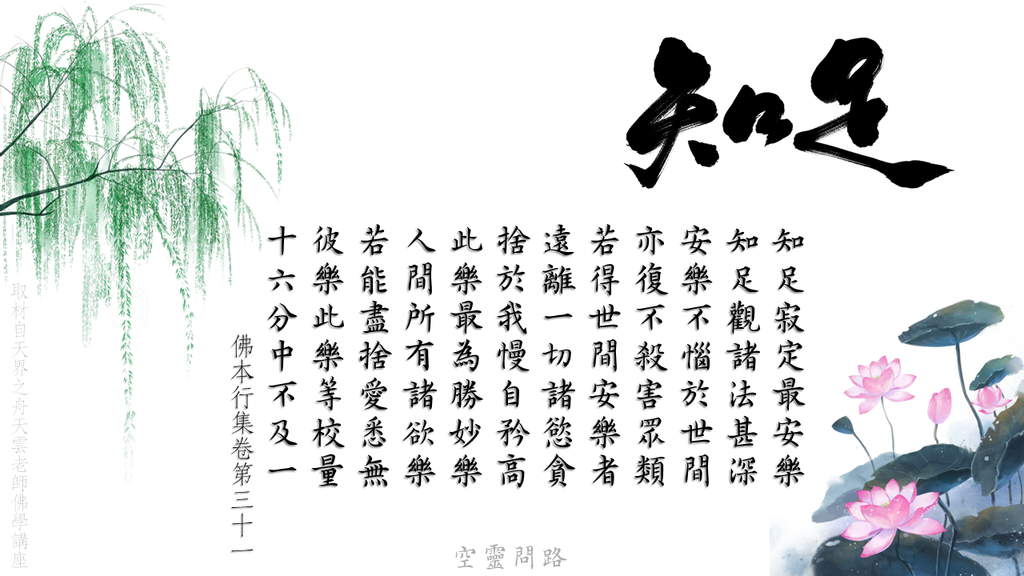 知足
知足寂定最安樂
知足觀諸法甚深
安樂不惱於世間
亦復不殺害眾類
若得世間安樂者
遠離一切諸慾貪
捨於我慢自矜高
此樂最為勝妙樂
人間所有諸欲樂
若能盡捨愛悉無
彼樂此樂等校量
十六分中不及一
佛本行集卷第三十一
取材自天界之舟天雲老師佛學講座
空靈問路